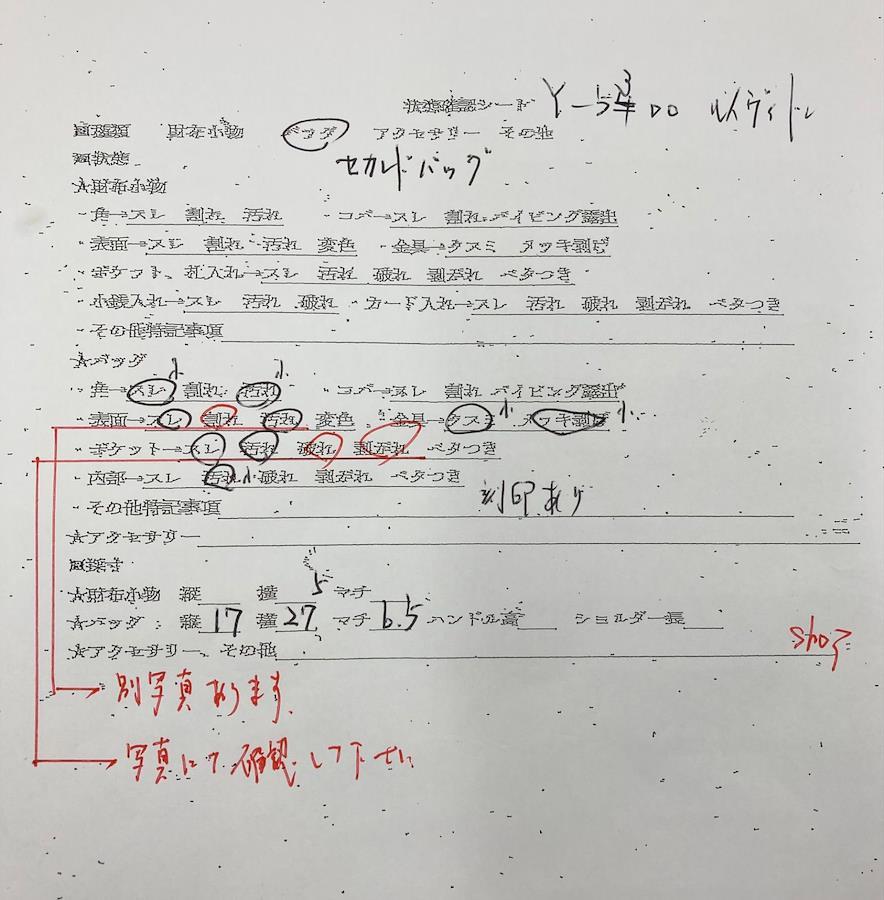 状態確認シート Y-53 DO ルイヴィトン
■種類 財布小物 バッグ アクセサリー その他
■状態 セカンドバッグ
★財布小物
・角→スレ 割れ 汚れ ・コバ→スレ 割れ パイピング露出
・表面→スレ 割れ 汚れ 変色 ・金具→クスミ メッキ剥げ
・ポケット、札入れ→スレ 汚れ 破れ 剥がれ ベタつき
・小銭入れ→スレ 汚れ 破れ ・カード入れ→スレ 汚れ 破れ 剥がれ ベタつき
・その他特記事項
★バッグ
・角→スレ小 割れ 汚れ小 ・コバ→スレ 割れ パイピング露出
・表面→スレ 割れ 汚れ 変色 ・金具→クスミ小 メッキ剥げ小
・ポケット→スレ 汚れ 破れ 剥がれ ベタつき
・内部→スレ 汚れ小 破れ 剥がれ ベタつき
・その他特記事項 刻印あり
★アクセサリー
■採寸
★財布小物 縦 横 5 マチ
★バッグ: 縦 17 横 27 マチ 6.5 ハンドル高 ショルダー長
★アクセサリー、その他
別写真あります
写真にて確認して下さい